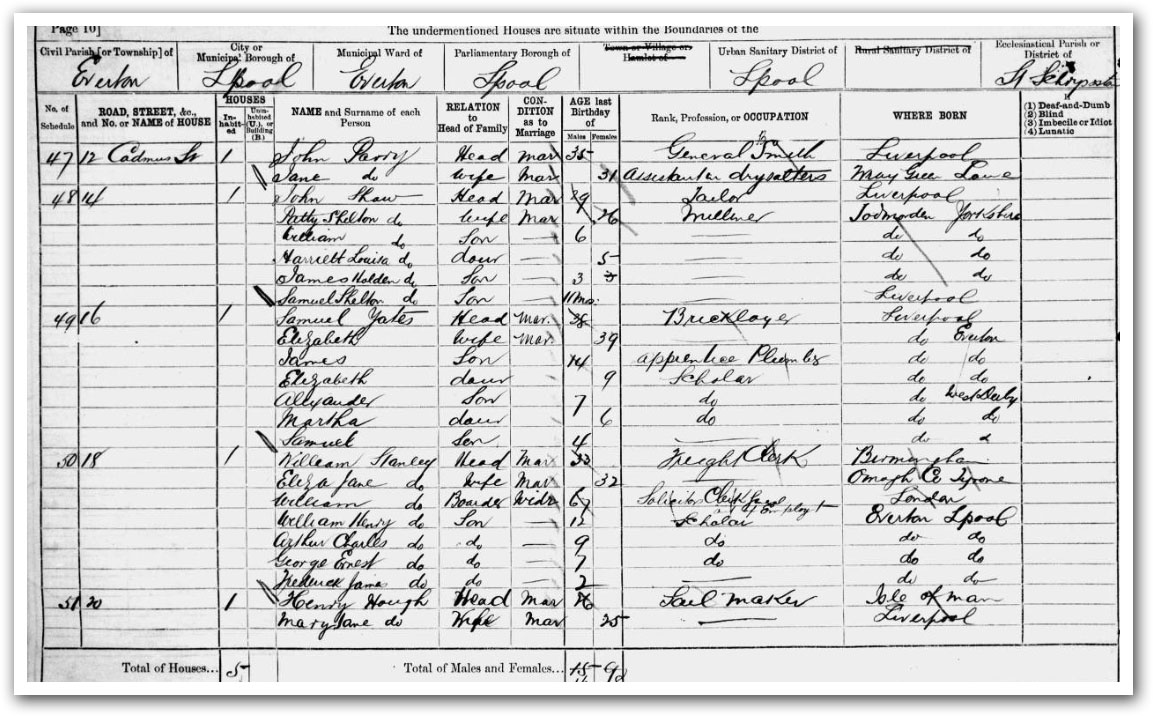 Page 10]
The undermentioned Houses are situate within the Boundaries of the
Civil Parish [or Township] of
City or Municipal Borough of
Municipal Ward of
Parliamentary Borough of
Town or Village or Hamlet of
Urban Sanitary District of
Rural Sanitary District of
Ecclesiastical Parish or District of
Everton L'pool Everton L'pool L'pool St
No. of Schedule
ROAD, STREET, &c., and No. or NAME of HOUSE
HOUSES
In-habit-ed
Unin-habited (U.), or Building (B.)
NAME and Surname of each Person
RELATION to Head of Family
CON-DITION as to Marriage
AGE last Birthday of
Males Females
Rank, Profession, or OCCUPATION
WHERE BORN
If
(1) Deaf-and-Dumb
(2) Blind
(3) Imbecile or Idiot
(4) Lunatic
47 12 Cadmus St 1 John Parry Head Mar 35 General Smith Liverpool
Jane do Wife Mar 31 Assistant drysalters May
48 14 1 John Shaw Head Mar 29 Tailor Liverpool
Shelton do Wife Mar 26 Milliner Todmorden Yorkshire
William do Son — 6 — do do
Harriett Louisa do daur — 5 — do do
James Holden do Son — 3 — do do
Samuel Shelton do Son — 11 mo. — Liverpool
49 16 1 Samuel Yates Head Mar. 38 Bricklayer Liverpool
Elizabeth Wife Mar. 39 do Everton
James Son 14 apprentice Plumber do do
Elizabeth daur 9 Scholar do do
Alexander Son 7 do do West Derby
Martha daur 6 do do do
Samuel Son 4 — do
50 18 1 William Stanley Head Mar 33 Freight Clerk Birmingham
Eliza Jane do Wife Mar 32 — Omagh Co Tyrone
William do Boarder Widr 67 Solicitors Clerk out of Employt London
William Henry do Son — 12 Scholar Everton L'pool
Arthur Charles do do — 9 do do do
George Ernest do do — 7 do do do
Frederick James do do — 2 — do do
51 20 1 Henry Hough Head Mar 26 Sail Maker Isle of Man
Mary Jane do Wife Mar 25 — Liverpool
Total of Houses... 5 Total of Males and Females... 15 9